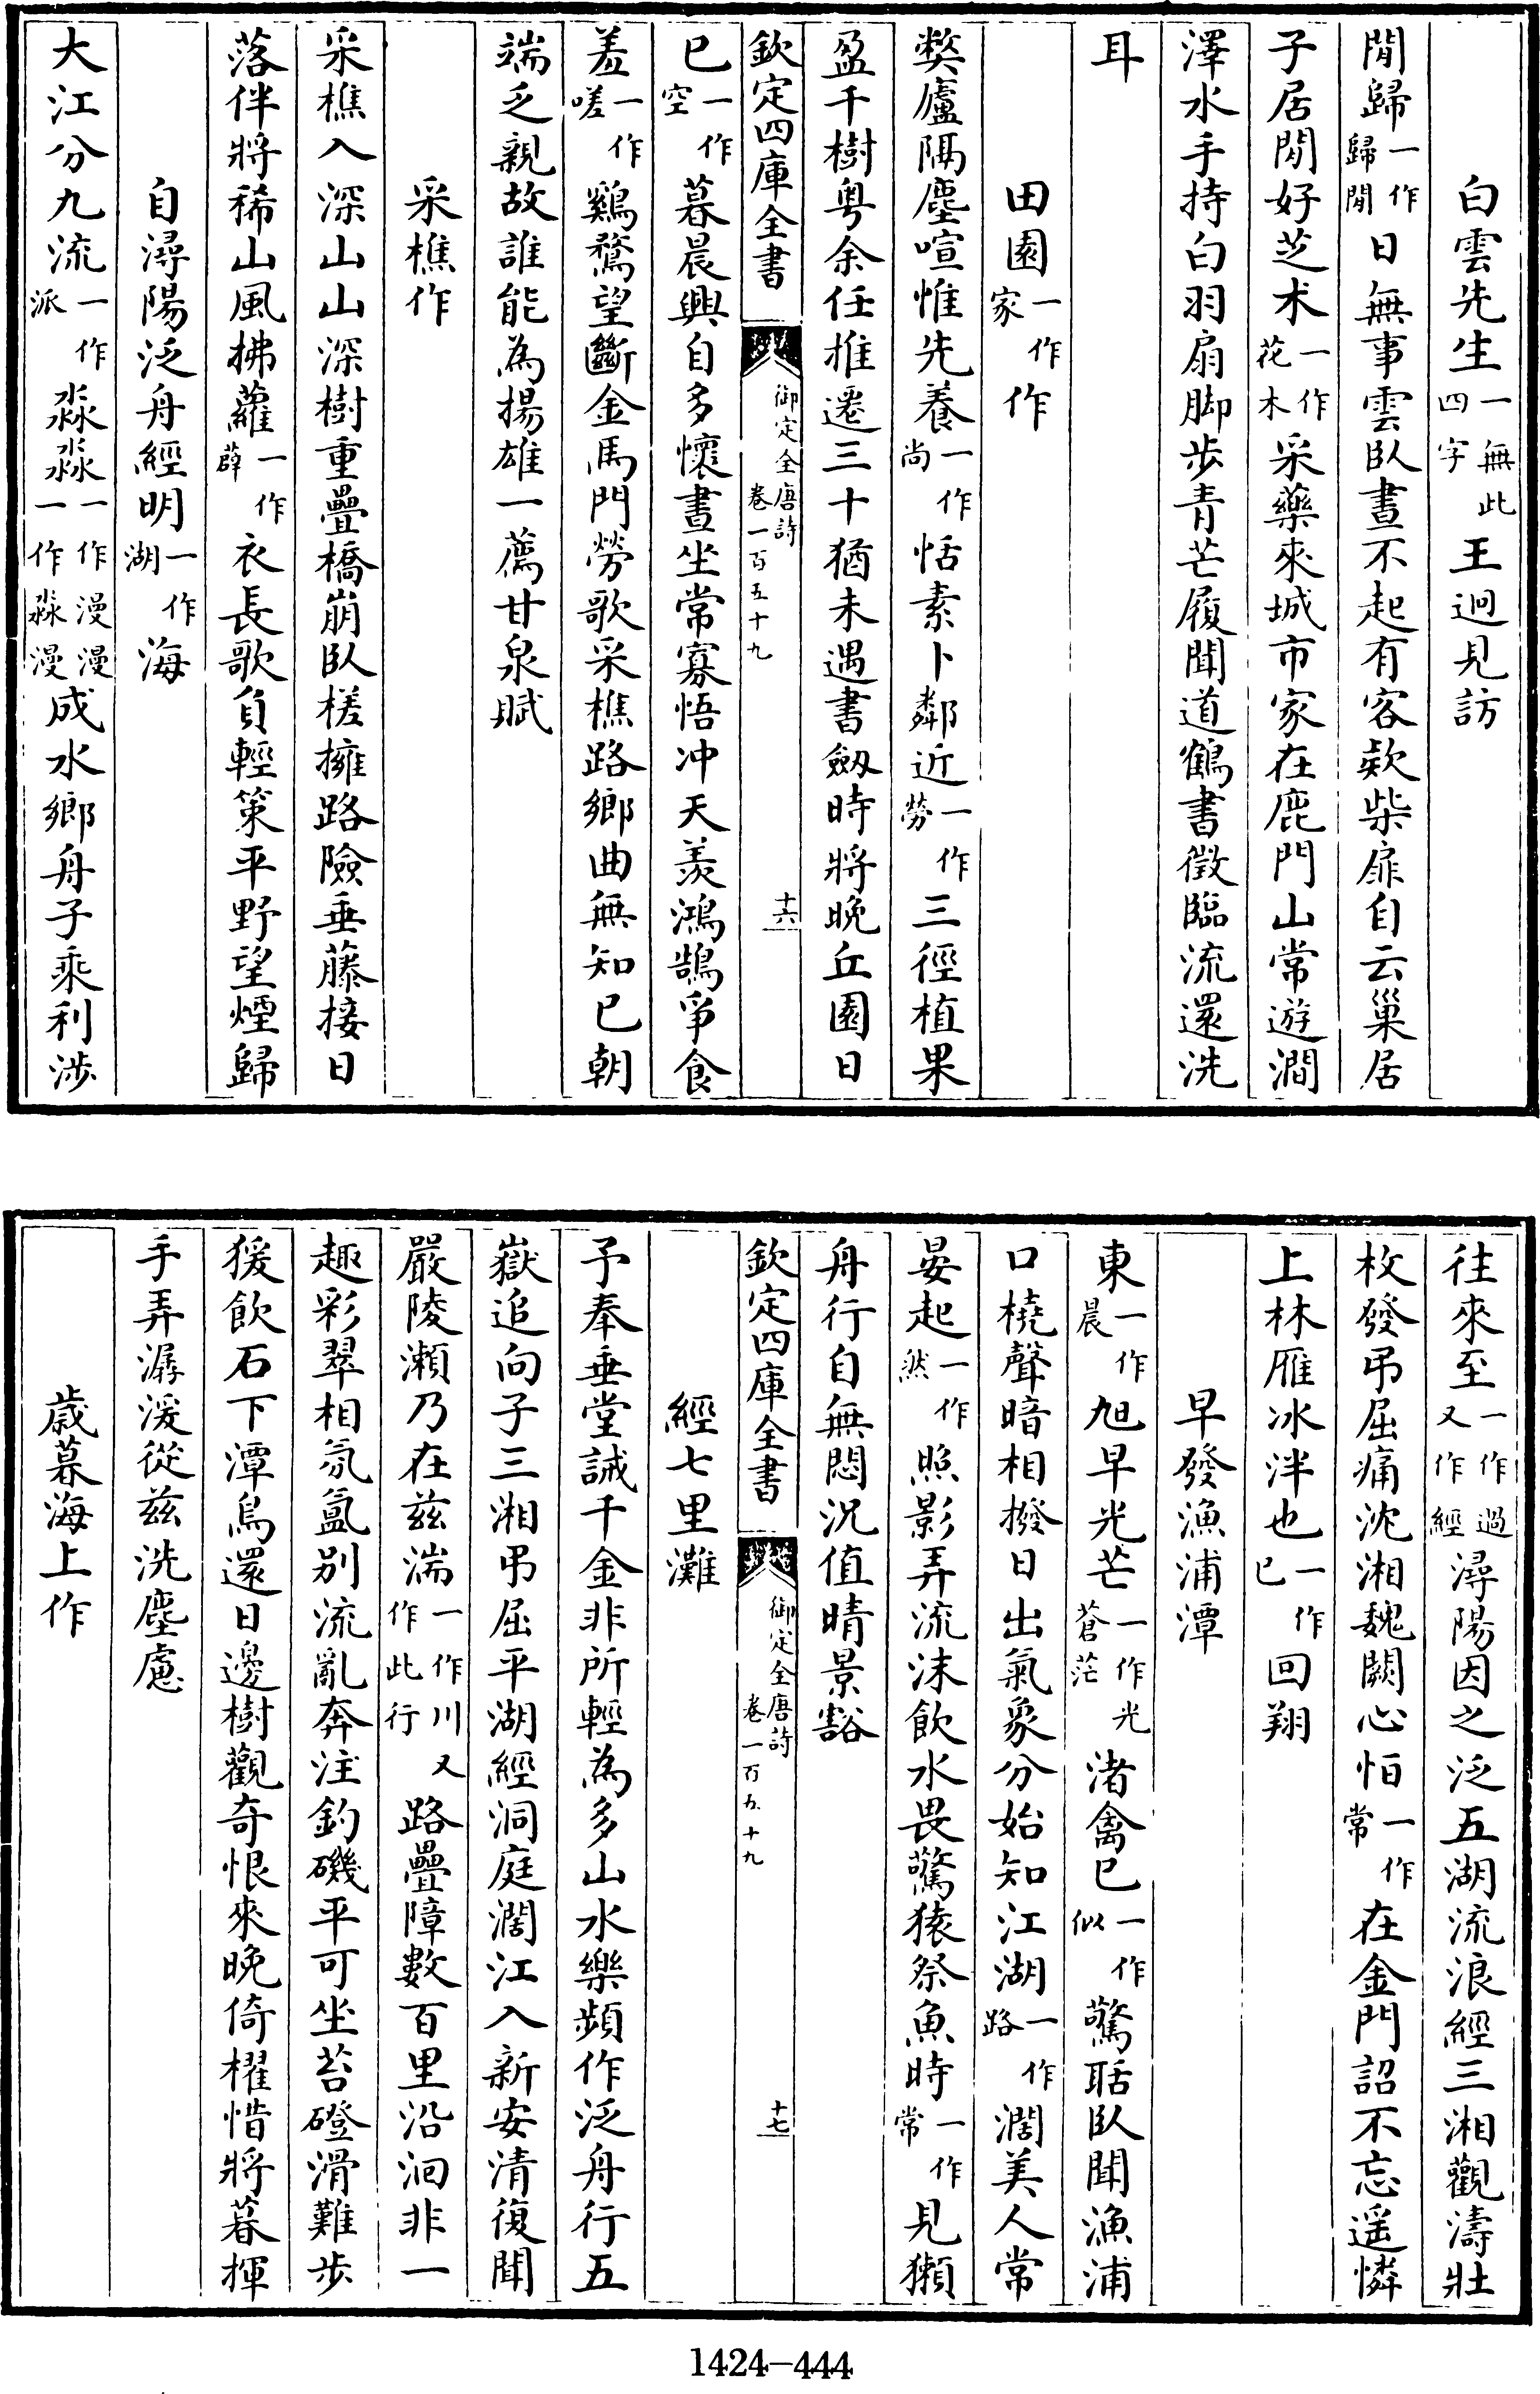 白雲先生一無此四字王迥見訪
閒歸一作歸閒日無事雲臥晝不起有客款柴扉自云巢居
子居閒好芝术一作花木采藥來城市家在鹿門山常遊澗
澤水手持白羽扇脚步青芒履聞道鶴書徵臨流還洗
耳
田園一作家作
獘廬隔塵喧惟先養一作尚恬素卜鄰近一作勞三徑植果
盈千樹粤余任推遷三十猶未遇書劒時將晚丘園日
欽定四庫全書 御定全唐詩卷一百五十九 十六
已一作空暮晨興自多懷晝坐常寡悟冲天羨鴻鵠爭食
羞一作嗟鷄鶩望斷金馬門勞歌采樵路鄉曲無知已朝
端乏親故誰能為揚雄一薦甘泉賦
采樵作
采樵入深山山深樹重疊橋崩臥槎擁路險垂藤接日
落伴將稀山風拂蘿一作薜衣長歌負輕策平野望煙歸
自潯陽泛舟經明一作湖海
大江分九流一作派淼淼一作漫漫一作淼漫成水鄉舟子乘利涉
往來至一作過又作經潯陽因之泛五湖流浪經三湘觀濤壯
枚發弔屈痛沈湘魏闕心怕一作常在金門詔不忘遥憐
上林雁冰泮也一作已回翔
早發漁浦潭
東一作晨旭早光芒一作光蒼茫渚禽已一作似驚聒臥聞漁浦
口橈聲暗相撥日出氣象分始知江湖一作路濶美人常
晏起一作然照影弄流沫飲水畏驚猿祭魚時一作常見獺
舟行自無悶況值晴景豁
欽定四庫全書 御定全唐詩卷一百五十九 十七
經七里灘
予奉垂堂誡千金非所輕為多山水樂頻作泛舟行五
嶽追向子三湘弔屈平湖經洞庭濶江入新安清復聞
嚴陵瀨乃在兹湍一作川又作此行路疊障數百里沿洄非一
趣彩翠相氛氲别流亂奔注釣磯平可坐苔磴滑難步
猨飲石下潭鳥還日邊樹觀奇恨來晚倚櫂惜將暮揮
手弄潺湲從兹洗塵慮
歲暮海上作
1424-444